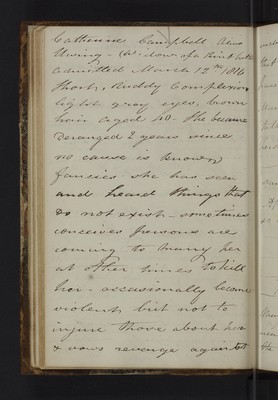 Catherine Campbell Alias
Ewing - Widow of a
Admitted March 12th 1816
Short, Ruddy Complexion
light gray eyes, brown
hair aged 40. She became
Deranged 2 years since
no cause is known,
fancies she has seen
and heard things that
do not exist - sometimes
conceives persons are
coming to marry her
at other times to kill
her - occasionally become
violent but not to
injure those about her
& vows revenge against